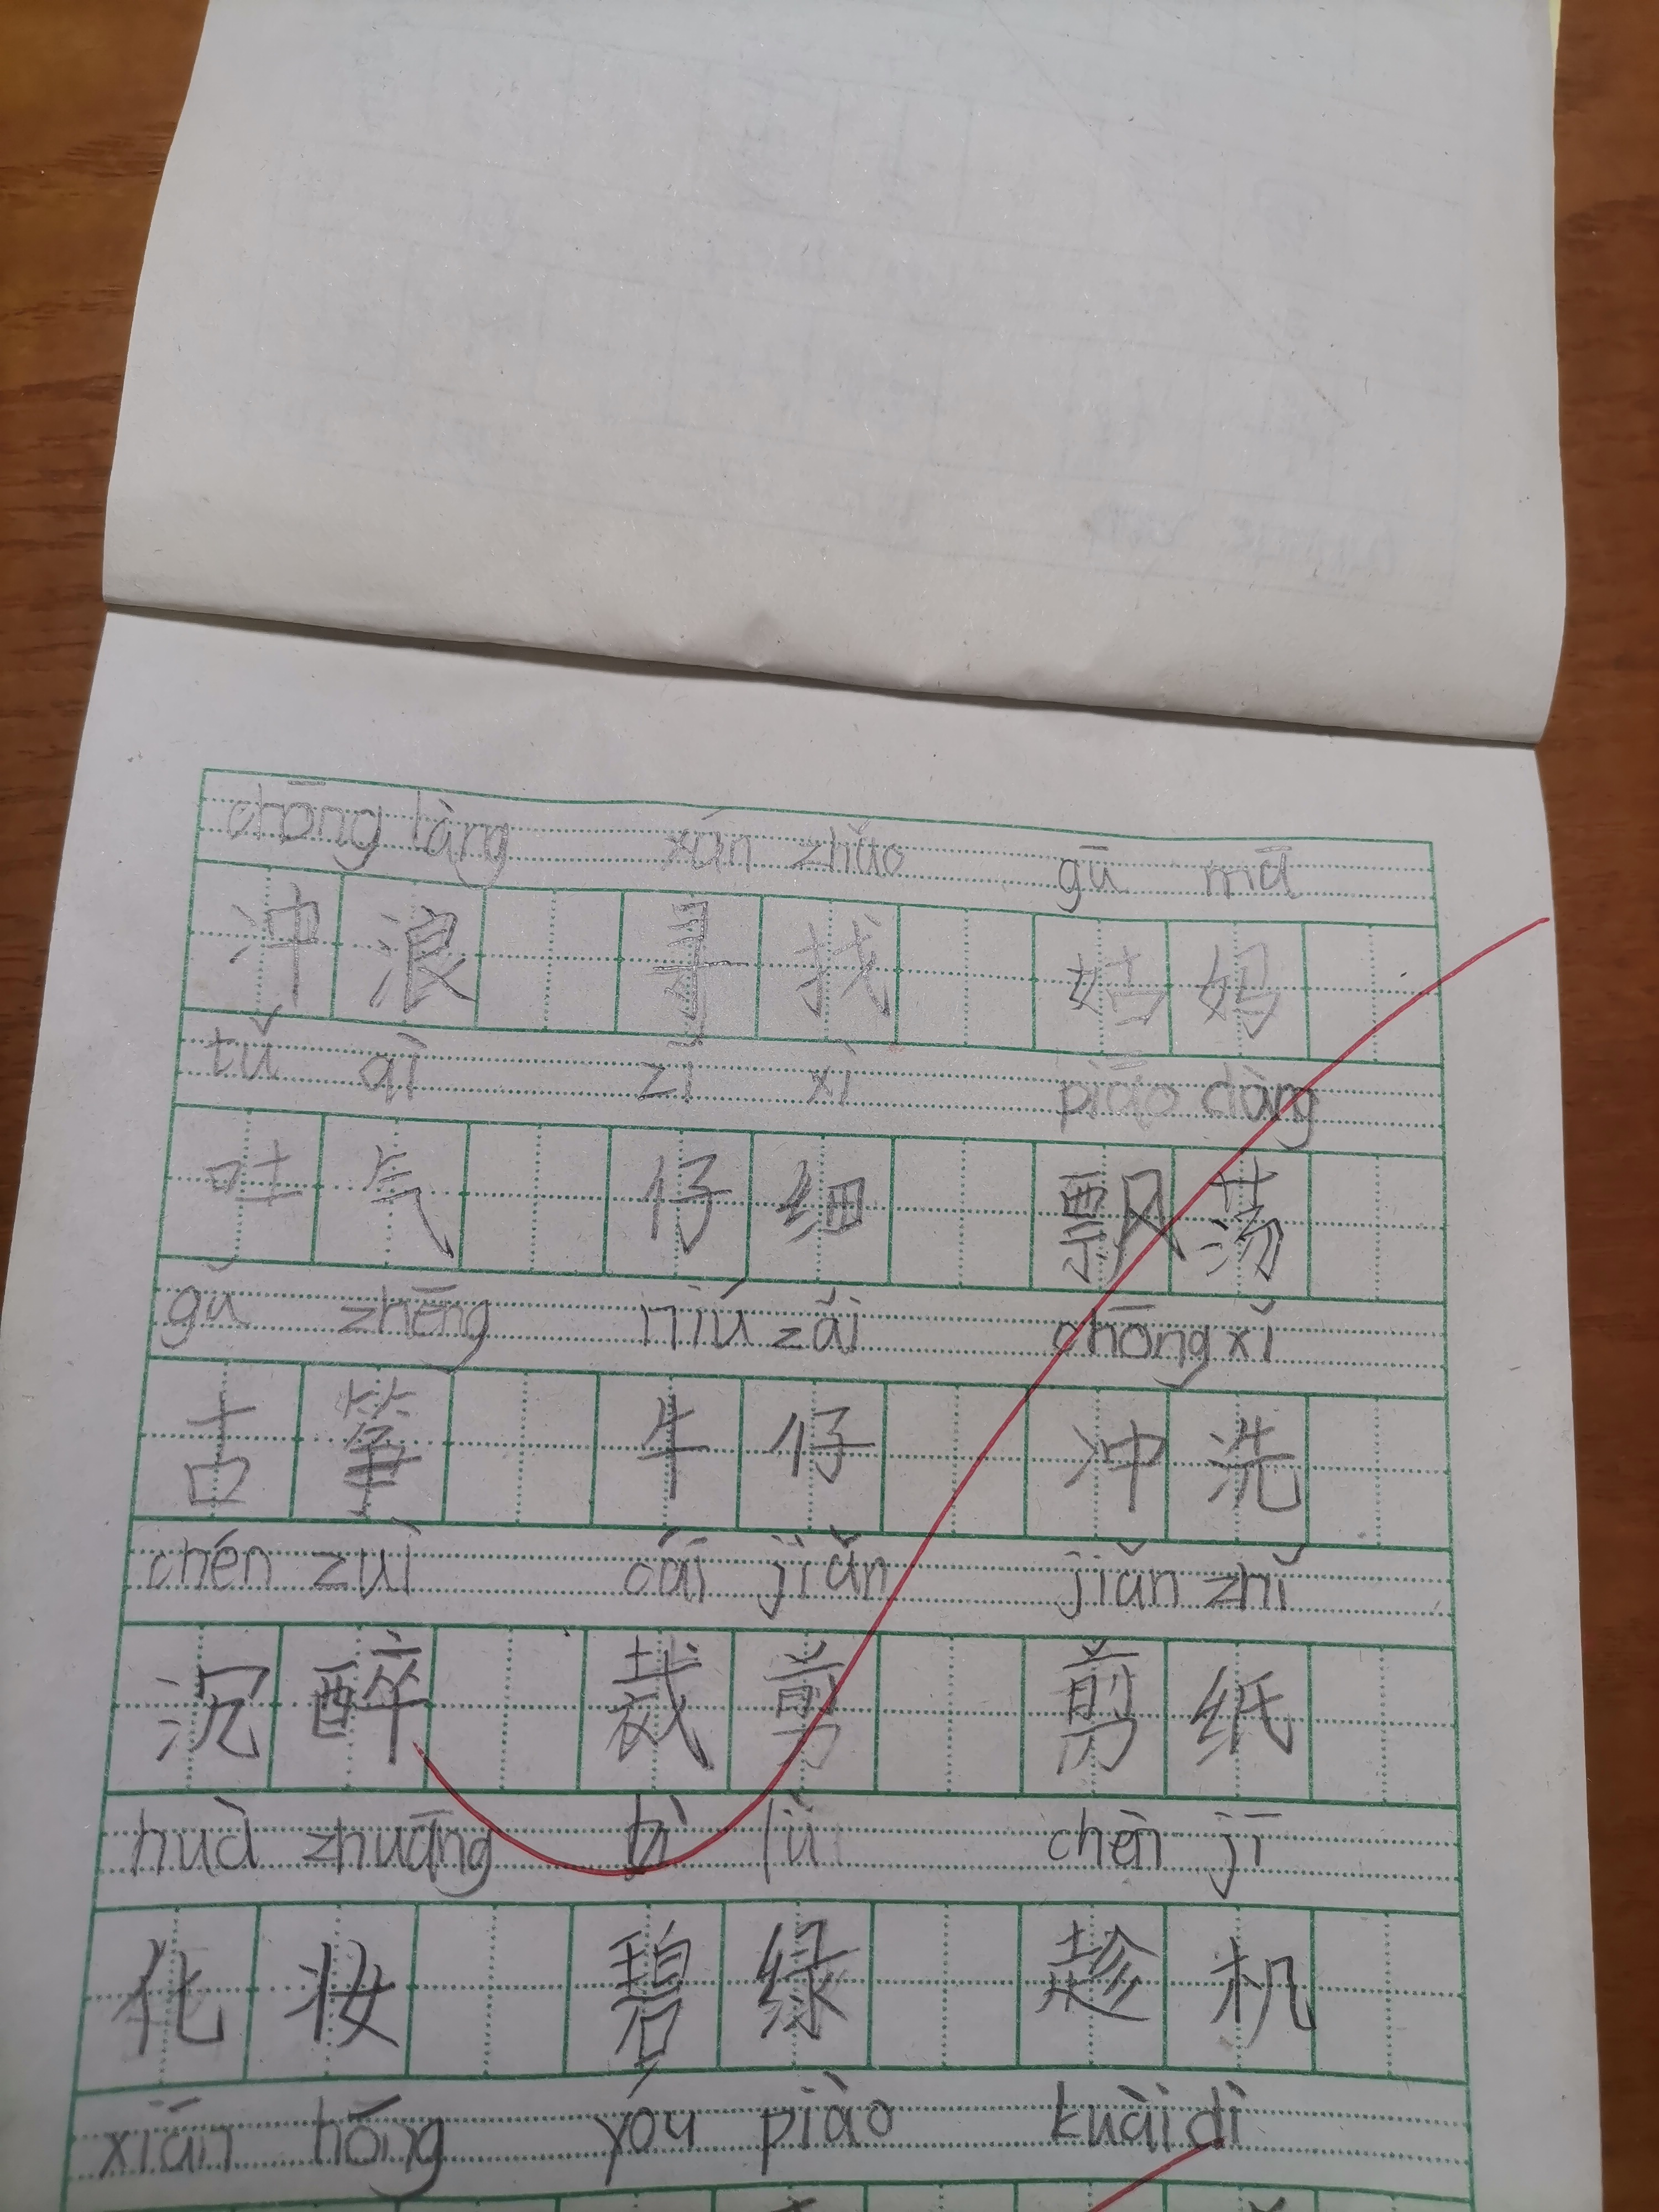 chōng làng xún zhǎo gū mā
冲浪 寻找 姑妈
tǔ qì zǐ xì piāo dàng
吐气 仔细 飘荡
gǔ zhēng niú zǎi chōng xǐ
古筝 牛仔 冲洗
chén zuì cái jiǎn jiǎn zhǐ
沉醉 裁剪 剪纸
huà zhuāng bì lǜ chèn jī
化妆 碧绿 趁机
xiān hóng yóu piào kuài dì